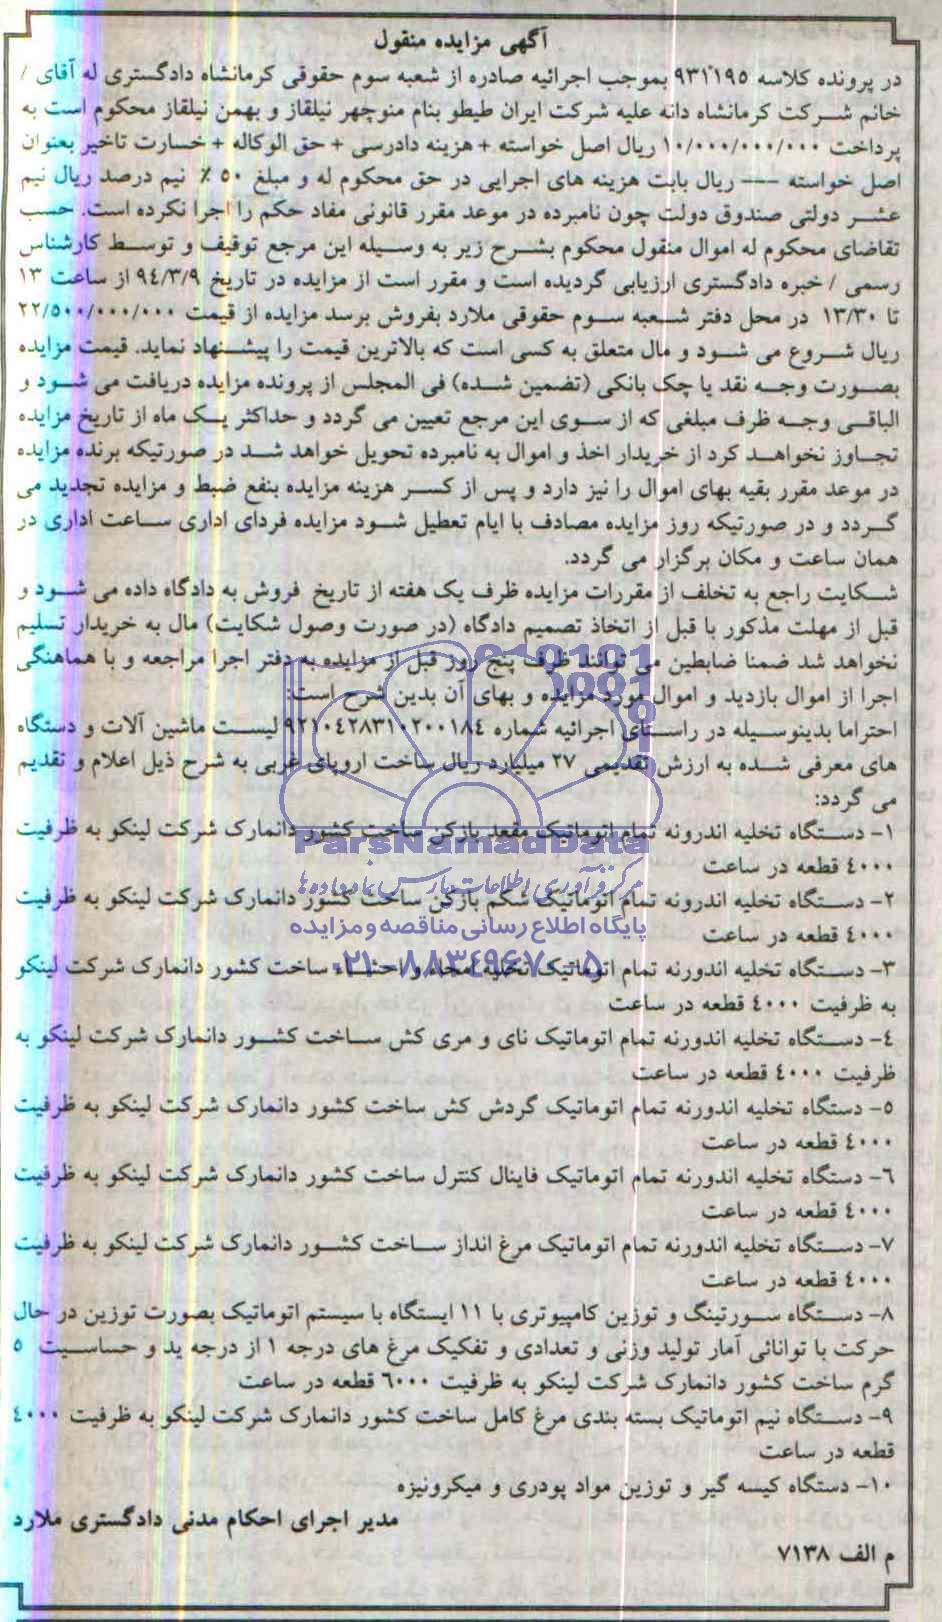 آگهی مزایده منقول
در پرونده کلاسه ۹۳۱۱۹۵ بموجب اجرائیه صادره از شعبه سوم حقوقی کرمانشاه دادگستری له آقای /
خانم شرکت کرمانشاه دانه علیه شرکت ایران طیطو بنام منوچهر نیلقاز و بهمن نیلقاز محکوم است به
پرداخت ۱۰/۰۰۰/۰۰۰/۰۰۰ ریال اصل خواسته + هزینه دادرسی + حق الوکاله + خسارت تاخیر بعنوان
اصل خواسته --- ریال بابت هزینه های اجرایی در حق محکوم له و مبلغ ۵۰ ٪ نیم درصد ریال نیم
عشر دولتی صندوق دولت چون نامبرده در موعد مقرر قانونی مفاد حکم را اجرا نکرده است. حسب
تقاضای محکوم له اموال منقول محکوم بشرح زیر به وسیله این مرجع توقیف و توسط کارشناس
رسمی / خبره دادگستری ارزیابی گردیده است و مقرر است از مزایده در تاریخ ۹٤/۳/۹ از ساعت ۱۳
تا ۱۳/۳۰ در محل دفتر شعبه سوم حقوقی ملارد بفروش برسد مزایده از قیمت ۲۲/۵۰۰/۰۰۰/۰۰۰
ریال شروع می شود و مال متعلق به کسی است که بالاترین قیمت را پیشنهاد نماید. قیمت مزایده
بصورت وجه نقد یا چک بانکی (تضمین شده) فی المجلس از پرونده مزایده دریافت می شود و
الباقی وجه ظرف مبلغی که از سوی این مرجع تعیین می گردد و حداکثر یک ماه از تاریخ مزایده
تجاوز نخواهد کرد از خریدار اخذ و اموال به نامبرده تحویل خواهد شد در صورتیکه برنده مزایده
در موعد مقرر بقیه بهای اموال را نیز دارد و پس از کسر هزینه مزایده بنفع ضبط و مزایده تجدید می
گردد و در صورتیکه روز مزایده مصادف با ایام تعطیل شود مزایده فردای اداری ساعت اداری در
همان ساعت و مکان برگزار می گردد.
شکایت راجع به تخلف از مقررات مزایده ظرف یک هفته از تاریخ فروش به دادگاه داده می شود و
قبل از مهلت مذکور با قبل از اتخاذ تصمیم دادگاه (در صورت وصول شکایت) مال به خریدار تسلیم
نخواهد شد ضمنا ضابطین می توانند ظرف پنج روز قبل از مزایده به دفتر اجرا مراجعه و با هماهنگی
اجرا از اموال بازدید و اموال مورد مزایده و بهای آن بدین شرح است:
احتراما بدینوسیله در راستای اجرائیه شماره ۹۲۱۰٤۲۸۳۱۰۲۰۰۱۸٤ لیست ماشین آلات و دستگاه
های معرفی شده به ارزش تقدیمی ۲۷ میلیارد ریال ساخت اروپای غربی به شرح ذیل اعلام و تقدیم
می گردد:
۱- دستگاه تخلیه اندرونه تمام اتوماتیک مقعد بازکن ساخت کشور دانمارک شرکت لینکو به ظرفیت
٤۰۰۰ قطعه در ساعت
ParsNamadData
مرکز فرآوری اطلاعات پارس نماد داده ها
۲- دستگاه تخلیه اندرونه تمام اتوماتیک شکم بازکن ساخت کشور دانمارک شرکت لینکو به ظرفیت
٤۰۰۰ قطعه در ساعت
پایگاه اطلاع رسانی مناقصه و مزایده
۰۲۱-۸۸۳٤۹۶۷۰-۵
۳- دستگاه تخلیه اندورنه تمام اتوماتیک تخلیه امحاء و احشاء ساخت کشور دانمارک شرکت لینکو
به ظرفیت ٤۰۰۰ قطعه در ساعت
٤- دستگاه تخلیه اندورنه تمام اتوماتیک نای و مری کش ساخت کشور دانمارک شرکت لینکو به
ظرفیت ٤۰۰۰ قطعه در ساعت
۵- دستگاه تخلیه اندورنه تمام اتوماتیک گردش کش ساخت کشور دانمارک شرکت لینکو به ظرفیت
٤۰۰۰ قطعه در ساعت
٦- دستگاه تخلیه اندورنه تمام اتوماتیک فاینال کنترل ساخت کشور دانمارک شرکت لینکو به ظرفیت
٤۰۰۰ قطعه در ساعت
۷- دستگاه تخلیه اندورنه تمام اتوماتیک مرغ انداز ساخت کشور دانمارک شرکت لینکو به ظرفیت
٤۰۰۰ قطعه در ساعت
۸- دستگاه سورتینگ و توزین کامپیوتری با ۱۱ ایستگاه با سیستم اتوماتیک بصورت توزین در حال
حرکت با توانائی آمار تولید وزنی و تعدادی و تفکیک مرغ های درجه ۱ از درجه ید و حساسیت ۵
گرم ساخت کشور دانمارک شرکت لینکو به ظرفیت ٦۰۰۰ قطعه در ساعت
۹- دستگاه نیم اتوماتیک بسته بندی مرغ کامل ساخت کشور دانمارک شرکت لینکو به ظرفیت ٤۰۰۰
قطعه در ساعت
۱۰- دستگاه کیسه گیر و توزین مواد پودری و میکرونیزه
مدیر اجرای احکام مدنی دادگستری ملارد
م الف ۷۱۳۸